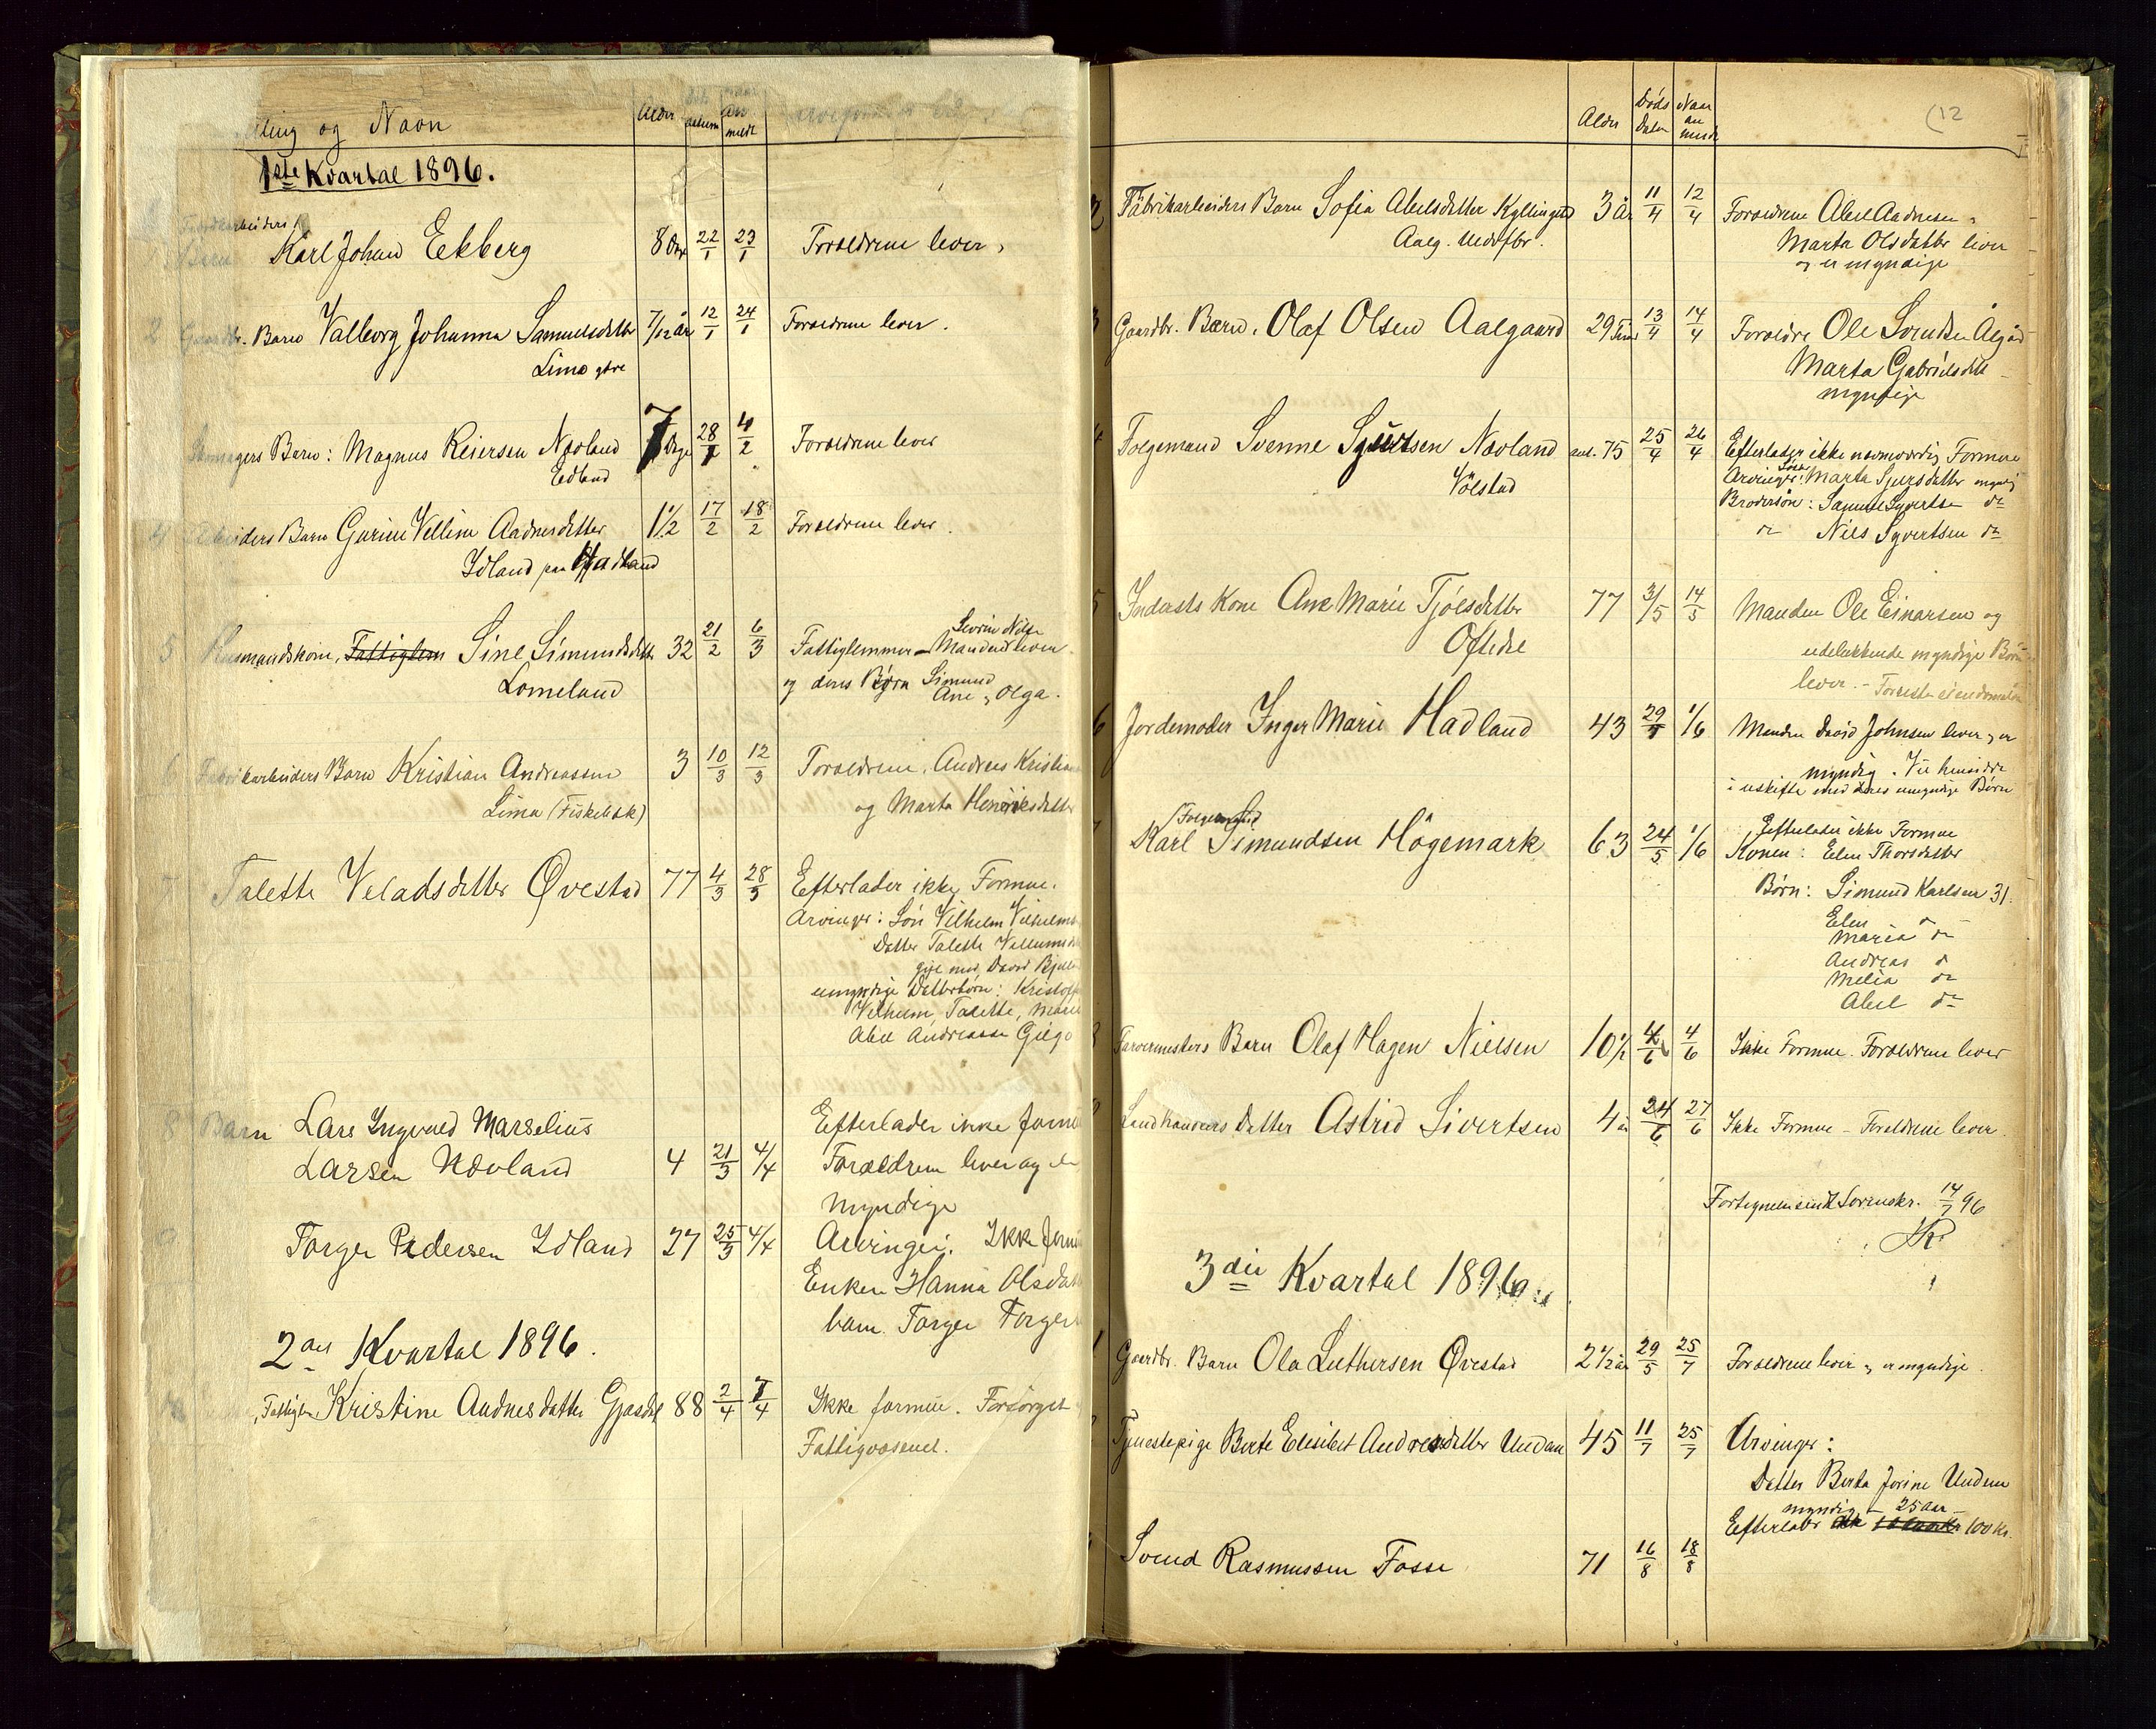 og Navn
Alder
datum
an
meldt
1ste Kvartal 1896.
Karl Johan Eckberg 8 Dge 22/1 23/1 Forældrene lever,
2 Gaardbr. Barn Valborg Johanna Samuelsdatter 7/12 år 12/1 24/1 Forældrene lever.
Lima gbre
Barn: Magnus Reiersen Nævland 7 Dge 28/1 4/2 Forældrene lever
Edland
4 Barn Gurine Velline Aadnesdatter 1 1/2 17/2 18/2 Forældrene lever.
Idland paa Hadland
5 Husmandskone, Fattiglem Sine Simundsdatter 32 21/2 6/3 Fattiglemmer - Manden lever
Lomeland og deres Børn Simund
Ane, Olga.
6 Fabrikarbeiders Barn Kristian Andreassen 3 10/3 12/3 Forældrene, Andreas Kristian
Lima (Fiskebæk) og Marta Henriksdatter
7 Talette Veladsdatter Øvestad 77 4/3 28/3 Efterlader ikke Formue.
Arvinger: Søn Vilhelm Vilhelms
Datter Talette
gift med David
umyndige Datterbørn: Kristof
Vilhelm, Talette, Marie
Abel Andreasse
8 Barn Lars Ingvald Marselius Efterlader ikke form
Larsen Nævland 4 21/3 4/4 Forældrene lever og er
myndige
Torger Pedersen Idland 27 25/3 4/4 Arvinger. Ikke form
Enken Hanna Olsdat
barn Torger Torgers
2det Kvartal 1896.
Fattiglem Kristine Aadnesdatter Gjesdal 88 2/4 7/4 Ikke formue. Forsørget
Fattigvæsenet.
(12
Alder
Døds
datum
Naar
an
meldt
2 Fabrikarbeiders Barn Sofia Abelsdatter Kyllingstd 3 år 11/4 12/4 Forældrene Abel Aadnesen,
Aalg. Uldfbr. Marta Olsdatter lever
og er myndige
3 Gaardbr. Barn. Olaf Olsen Aalgaard 29 Timer 13/4 14/4 Forældre Ole Svendsen Ålgård
Marta Gabrielsdtt
myndige
4 Folgemand Svenne Syvertsen Nævland 75 25/4 26/4 Efterlader ikke nævneværdig Formue
Vølstad Arvinger: Marta Sjursdatter myndig
Brodersøn: Samuel Syvertsen do
do Niels Syvertsen do
5 Indersts Kone Ane Marie Tjølsdatter 77 3/5 14/5 Manden Ole Einarsen og
Oftedal udelukkende myndige Børn
lever. -
6 Jordemoder Inger Marie Hadland 43 29/5 1/6 Manden David Johnsen lever, er
myndig. Vil hensidde
i uskifte med deres umyndige Børn
Folgemand
7 Karl Simundsen Högemark 63 24/5 1/6 Efterlader ikke Formue
Konen: Elen Thorsdatter
Børn: Simund Karlsen 31.
Elen do
Maria do
Andreas do
Melia do
Abel do
8 Farvermesters Barn Olaf Hagen Nielsen 10 1/2 4/6 4/6 Ikke Formue. Forældrene lever
Landhandlers Datter Astrid Sivertsen 4 år 24/6 27/6 Ikke Formue - Foreldrene lever.
Fortegnelsen sendt Sorenskr. 14/7 96
3die Kvartal 1896
1 Gaardbr. Barn Ola Luthersen Øvestad 2 1/2 år 29/5 25/7 Forældrene lever, er myndige.
Tjenestepige Berte Elisabet Andreasdatter Undem 45 11/7 25/7 Arvinger:
Datter Berta Jorine Undem
myndig - 25 Aar -
Efterlader 100 Kr.
Svend Rasmussen Fosse 71 16/8 18/8